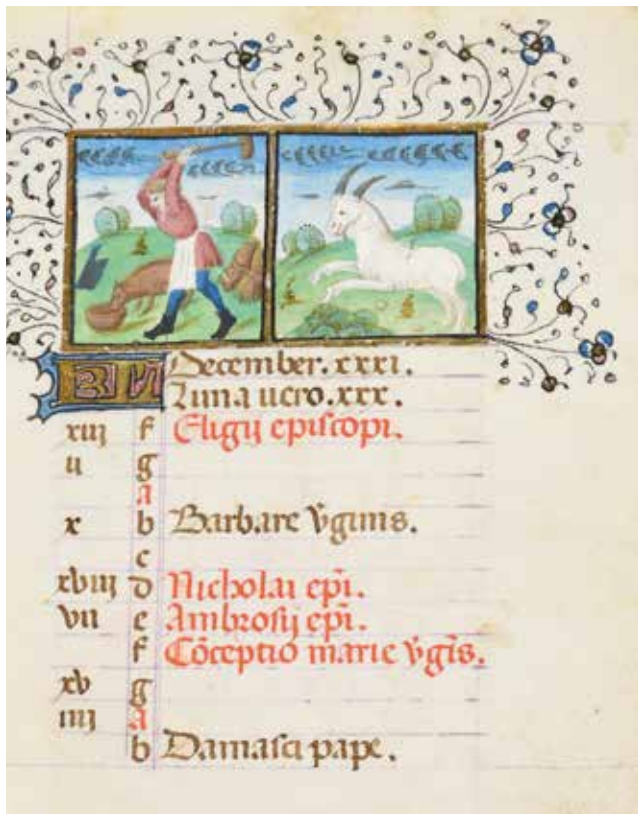 KL December.xxxi.
Luna uero.xxx.
xiij f Eligij episcopi.
ij g
a
x b Barbare v̄ginis.
c
xviij d Nicholai ep̄i.
vij e Ambrosij ep̄i.
f Cōceptio marie v̄gīs.
xv g
iiij a
b Damasci pape.